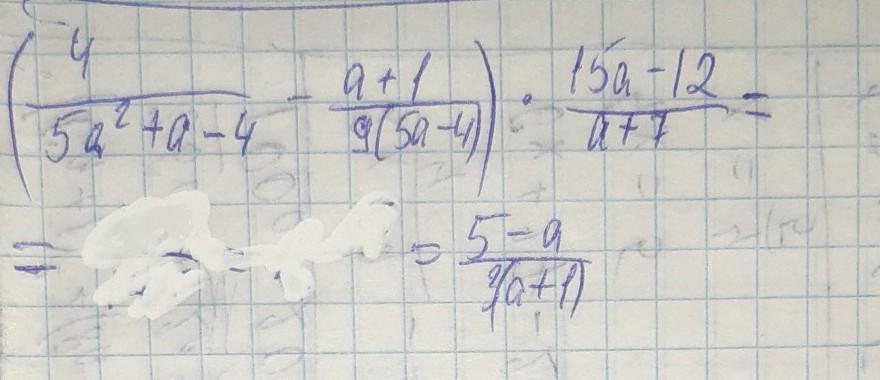 (4/(5a² + a - 4) - (a + 1)/(9(5a - 4))) · (15a - 12)/(a + 7) =
= = (5 - a)/(3(a + 1))